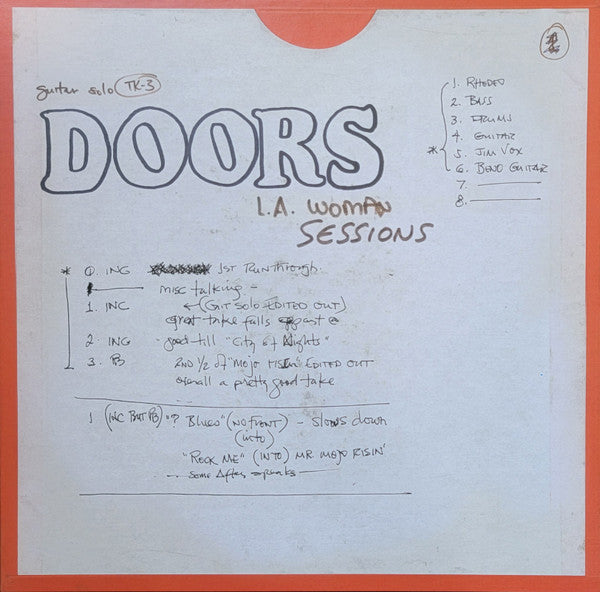 1
guitar solo TK-3
DOORS
L.A. WOMAN
SESSIONS
1. RHODES
2. BASS
3. DRUMS
4. GUITAR
* 5. JIM VOX
6. BEND GUITAR
7.
8.
* 0. ING 1ST RunThrough.
misc talking -
1. INC (GIT SOLO EDITED OUT)
great take falls apart @
2. ING good till "City of Nights"
3. PB 2ND 1/2 of "MOJO RISIN" EDITED OUT
overall a pretty good take
1 (INC BUT PB) "? Blues" (NO FRONT) - slows down
(into)
"ROCK ME" (INTO) MR MOJO RISIN'
- some After speaks -